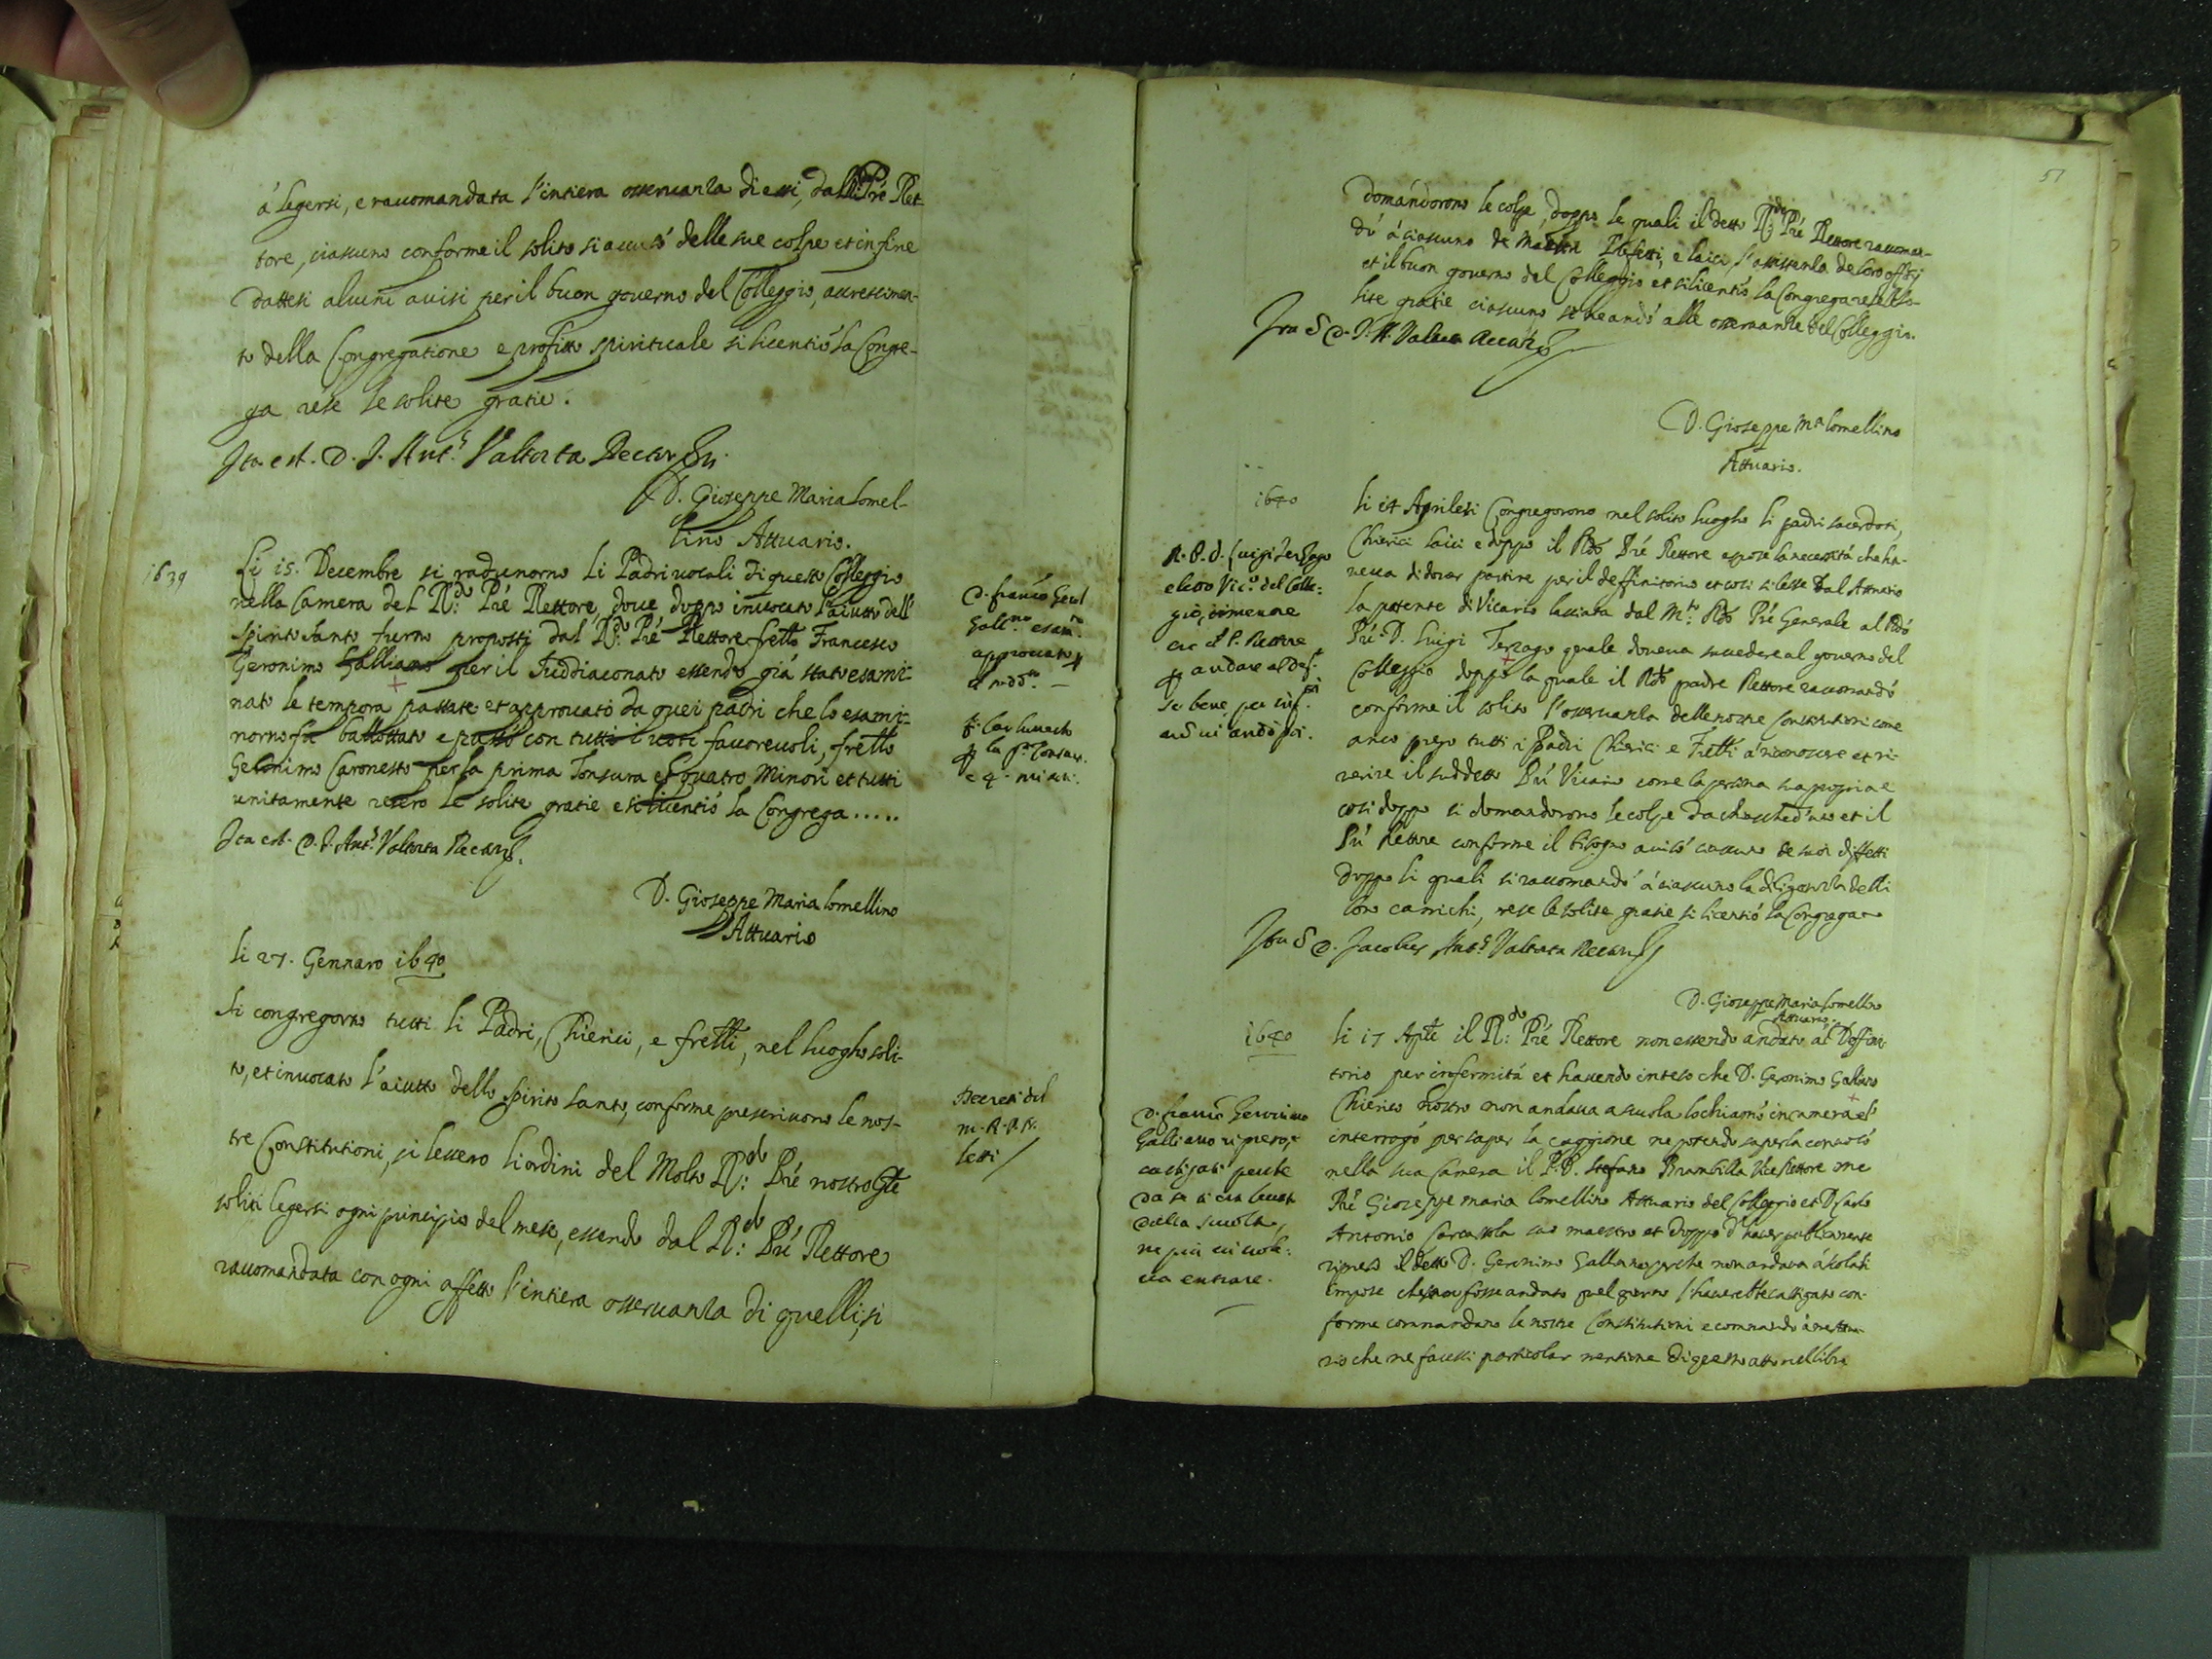 à legersi, e raccomandata l'intiera osservanza di essi, dal Pré Ret-
tore, ciascuno conforme il solito si accusò delle sue colpe et in fine
dattesi alcuni avisi per il buon governo del Colleggio, accrescimen-
to della Congregatione e profitto spirituale si licentiò la Congre-
ga rese le solite gratie.
Ita est. D. J. Ant.s Valtorta Rector
D. Gioseppe Maria Lomel-
lino Attuario.
1639
Li 15. Decembre si radunorno li Padri vocali di questo Colleggio
nella Camera del R:do Pré Rettore, dove doppo invocato l'aiutto dell'
Spirito Santo furno proposti dal R:do Pré Rettore frello Francesco
Geronimo Galliano per il Suddiaconato essendo già stato esami-
nato le tempora passate et approvato da quei padri che lo esami-
norno fu ballottato e passò con tutti i voti favorevoli, frello
Geronimo Caronesto per la prima Tonsura et quatro Minori et tutti
unitamente resero le solite gratie e si licentiò la Congrega.....
Ita est. D. J. Ant.s Valtorta Rector
D. Gioseppe Maria Lomellino
Attuario
D. Franco Gerol
Gallno esam.to
approvato p
il suddno. —
p la pa Tonsur.
e 4. minori.
li 27. Gennaro 1640
Si congregorno tutti li Padri, Chierici, e frelli, nel luogho soli-
to, et invocato l'aiutto dello Spirito Santo, conforme prescrivono le nos-
tre Constitutioni, si lessero li ordini del Molto R:do Pré nostro Gle
soliti legersi ogni principio del mese, essendo dal R:do Pré Rettore
raccomandata con ogni affetto l'intiera osservanza di quelli, si
Decreti del
m. R. P. N.
letti
51
domandorono le colpe, doppo le quali il detto R:do Pré Rettore raccoman-
dò à ciascuno de Maestri Prefetti, e laici l'assistenza de loro offitij
et il buon governo del Colleggio et si licentiò la Congrega rese le so-
lite gratie ciascuno se ne andò alle osservanze del Colleggio.
Ita est D. J. A. Valtorta Rector
D. Gioseppe Ma Lomellino
Attuario.
1640
li 14 Aprile si Congregorono nel solito luogho li padri sacerdoti,
Chierici laici e doppo il Rdo Pré Rettore espose la necessità che ha-
veva di dover partire per il deffinitorio et così si lesse dal Attuario
la patente di Vicario lasciata dal Mto: Rdo Pré Generale al Rdo
Pré D. Luigi Terzago quale doveva succedere al governo del
Colleggio doppo la quale il Rdo padre Rettore raccomandò
conforme il solito l'osservanza delle nostre Constitutioni come
anco pregò tutti i Padri Chierici e Frelli à riconoscere et ri-
verire il suddetto Pré Vicario come la persona sua propria e
così doppo si domandorono le colpe da chascheduno et il
Pré Rettore conforme il bisogno avisò ciascuno de suoi diffetti
doppo li quali si raccomandò à ciascuno la diligenza delli
loro carrichi, rese le solite gratie si licentiò la Congrega
Ita est D. Jacobus Ant.s Valtorta Rector
D. Gioseppe Maria Lomellino
Attuario.
R. P. D. Luigi Terzago
eletto Vic.o del Colle=
gio, rimanere
il P. Rettore
p andare al def.o
se bene per inf.tà
non vi andò poi.
1640
li 17 Aple il R:do Pré Rettore non essendo andato al Deffini-
torio per infermità et havendo inteso che D. Geronimo Galliano
Chierico nostro non andava a scuola lo chiamò in camera et
interrogò per saper la caggione ne potendo saperla convocò
nella sua Camera il P. D. Stefano Brambilla ViceRettore me
Pré Gioseppe Maria Lomellino Attuario del Colleggio et D. Carlo
Antonio Carcassola suo maestro et doppo d'haver publicamente
ripreso il detto D. Geronimo Galliano perche non andava à scola li
impose che se non fosse andato quel giorno l'haverebbe castigato con-
forme commandano le nostre Constitutioni e commandò à me Attua-
rio che ne facessi particolar mentione di questo atto nel libro
D. Franco Geronimo
Galliano ripreso, e
castigato perche
da se si era levato
dalla scuola,
ne più vi vole-
va entrare.